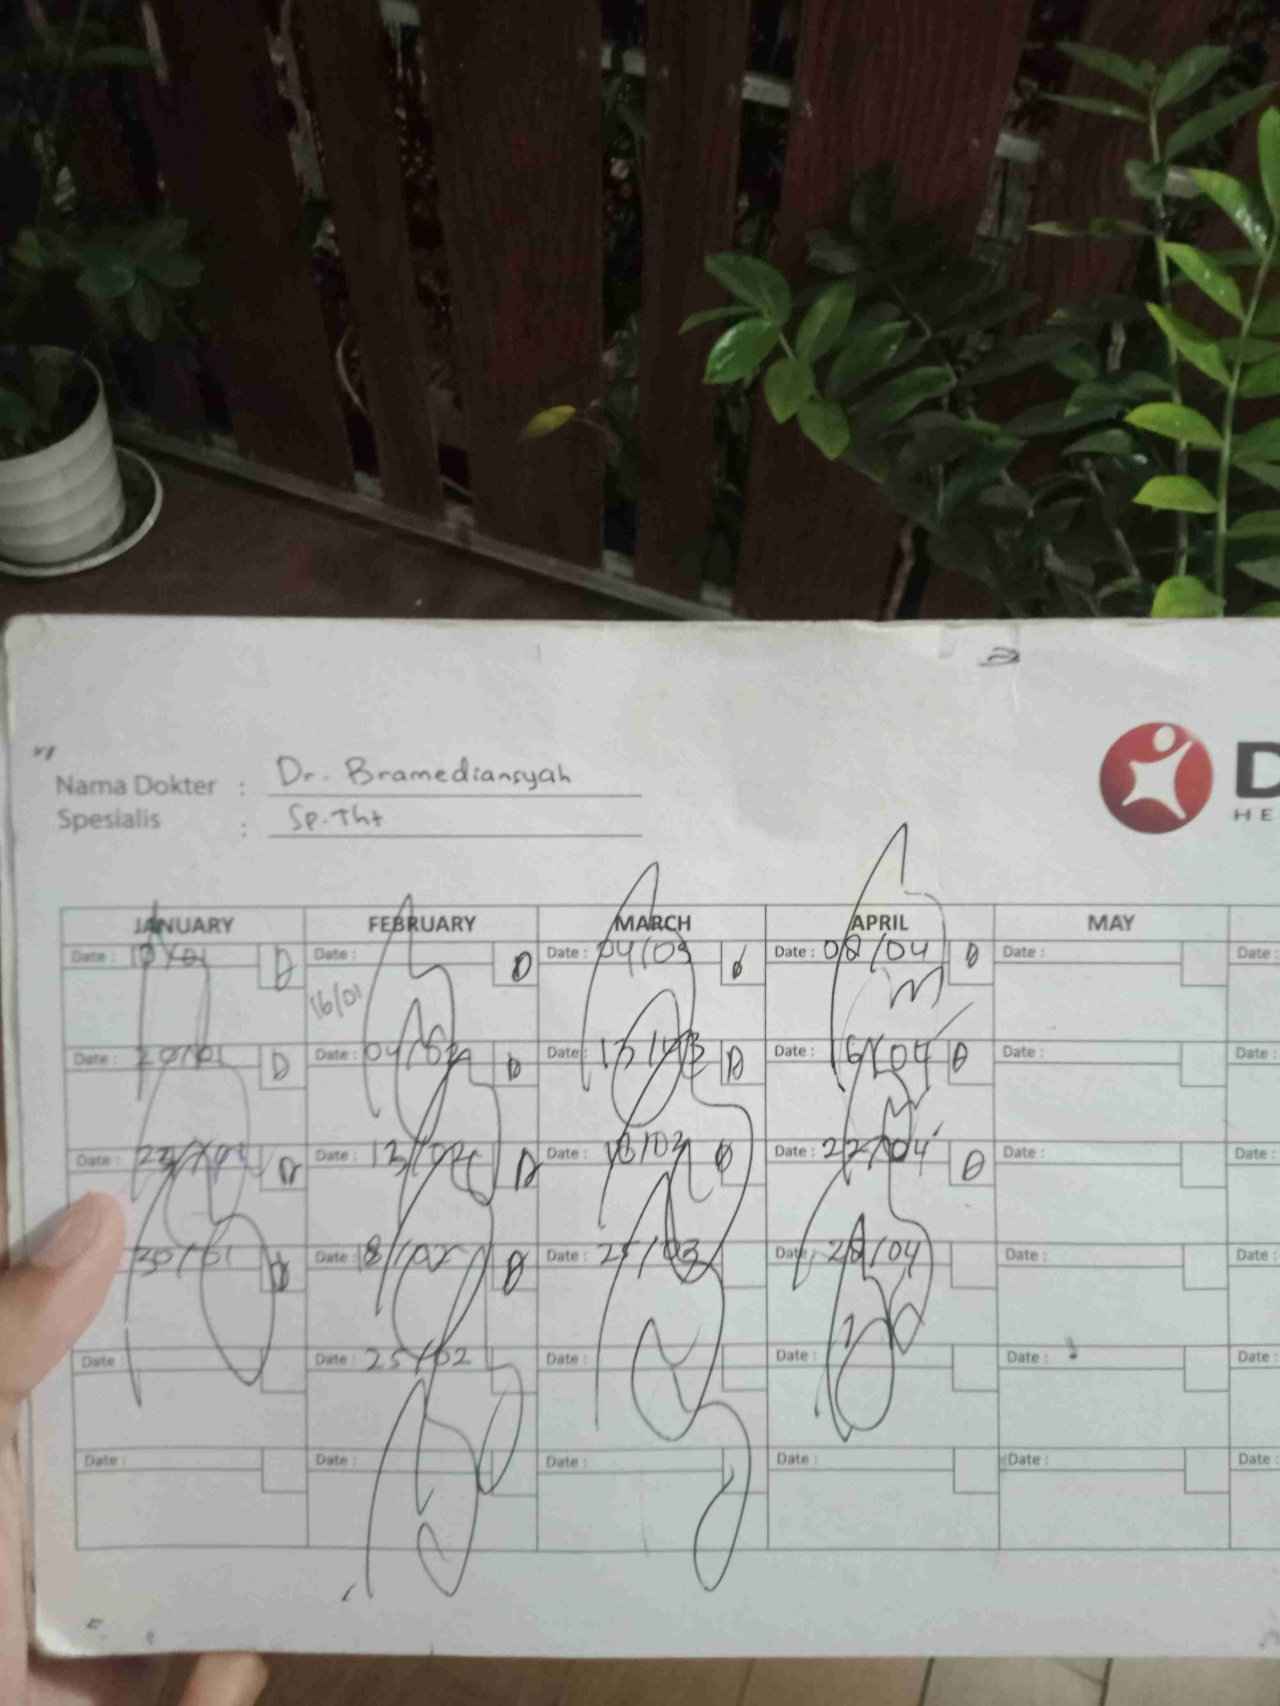 Nama Dokter : Dr. Bramediansyah
Spesialis : Sp.Tht
D
HE
JANUARY FEBRUARY MARCH APRIL MAY
Date : D Date : D Date : 04/03 Date : 08/04 D Date : Date :
16/01
Date : 20/01 D Date : 04/02 D Date : 13/03 D Date : 16/04 D Date : Date :
Date : D Date : 13/02 D Date : 18/03 D Date : 22/04 D Date : Date :
30/01 D Date : 18/02 D Date : 25/03 Date : 28/04 Date : Date :
Date : Date : 25/02 Date : Date : Date : Date :
Date : Date : Date : Date : Date : Date :